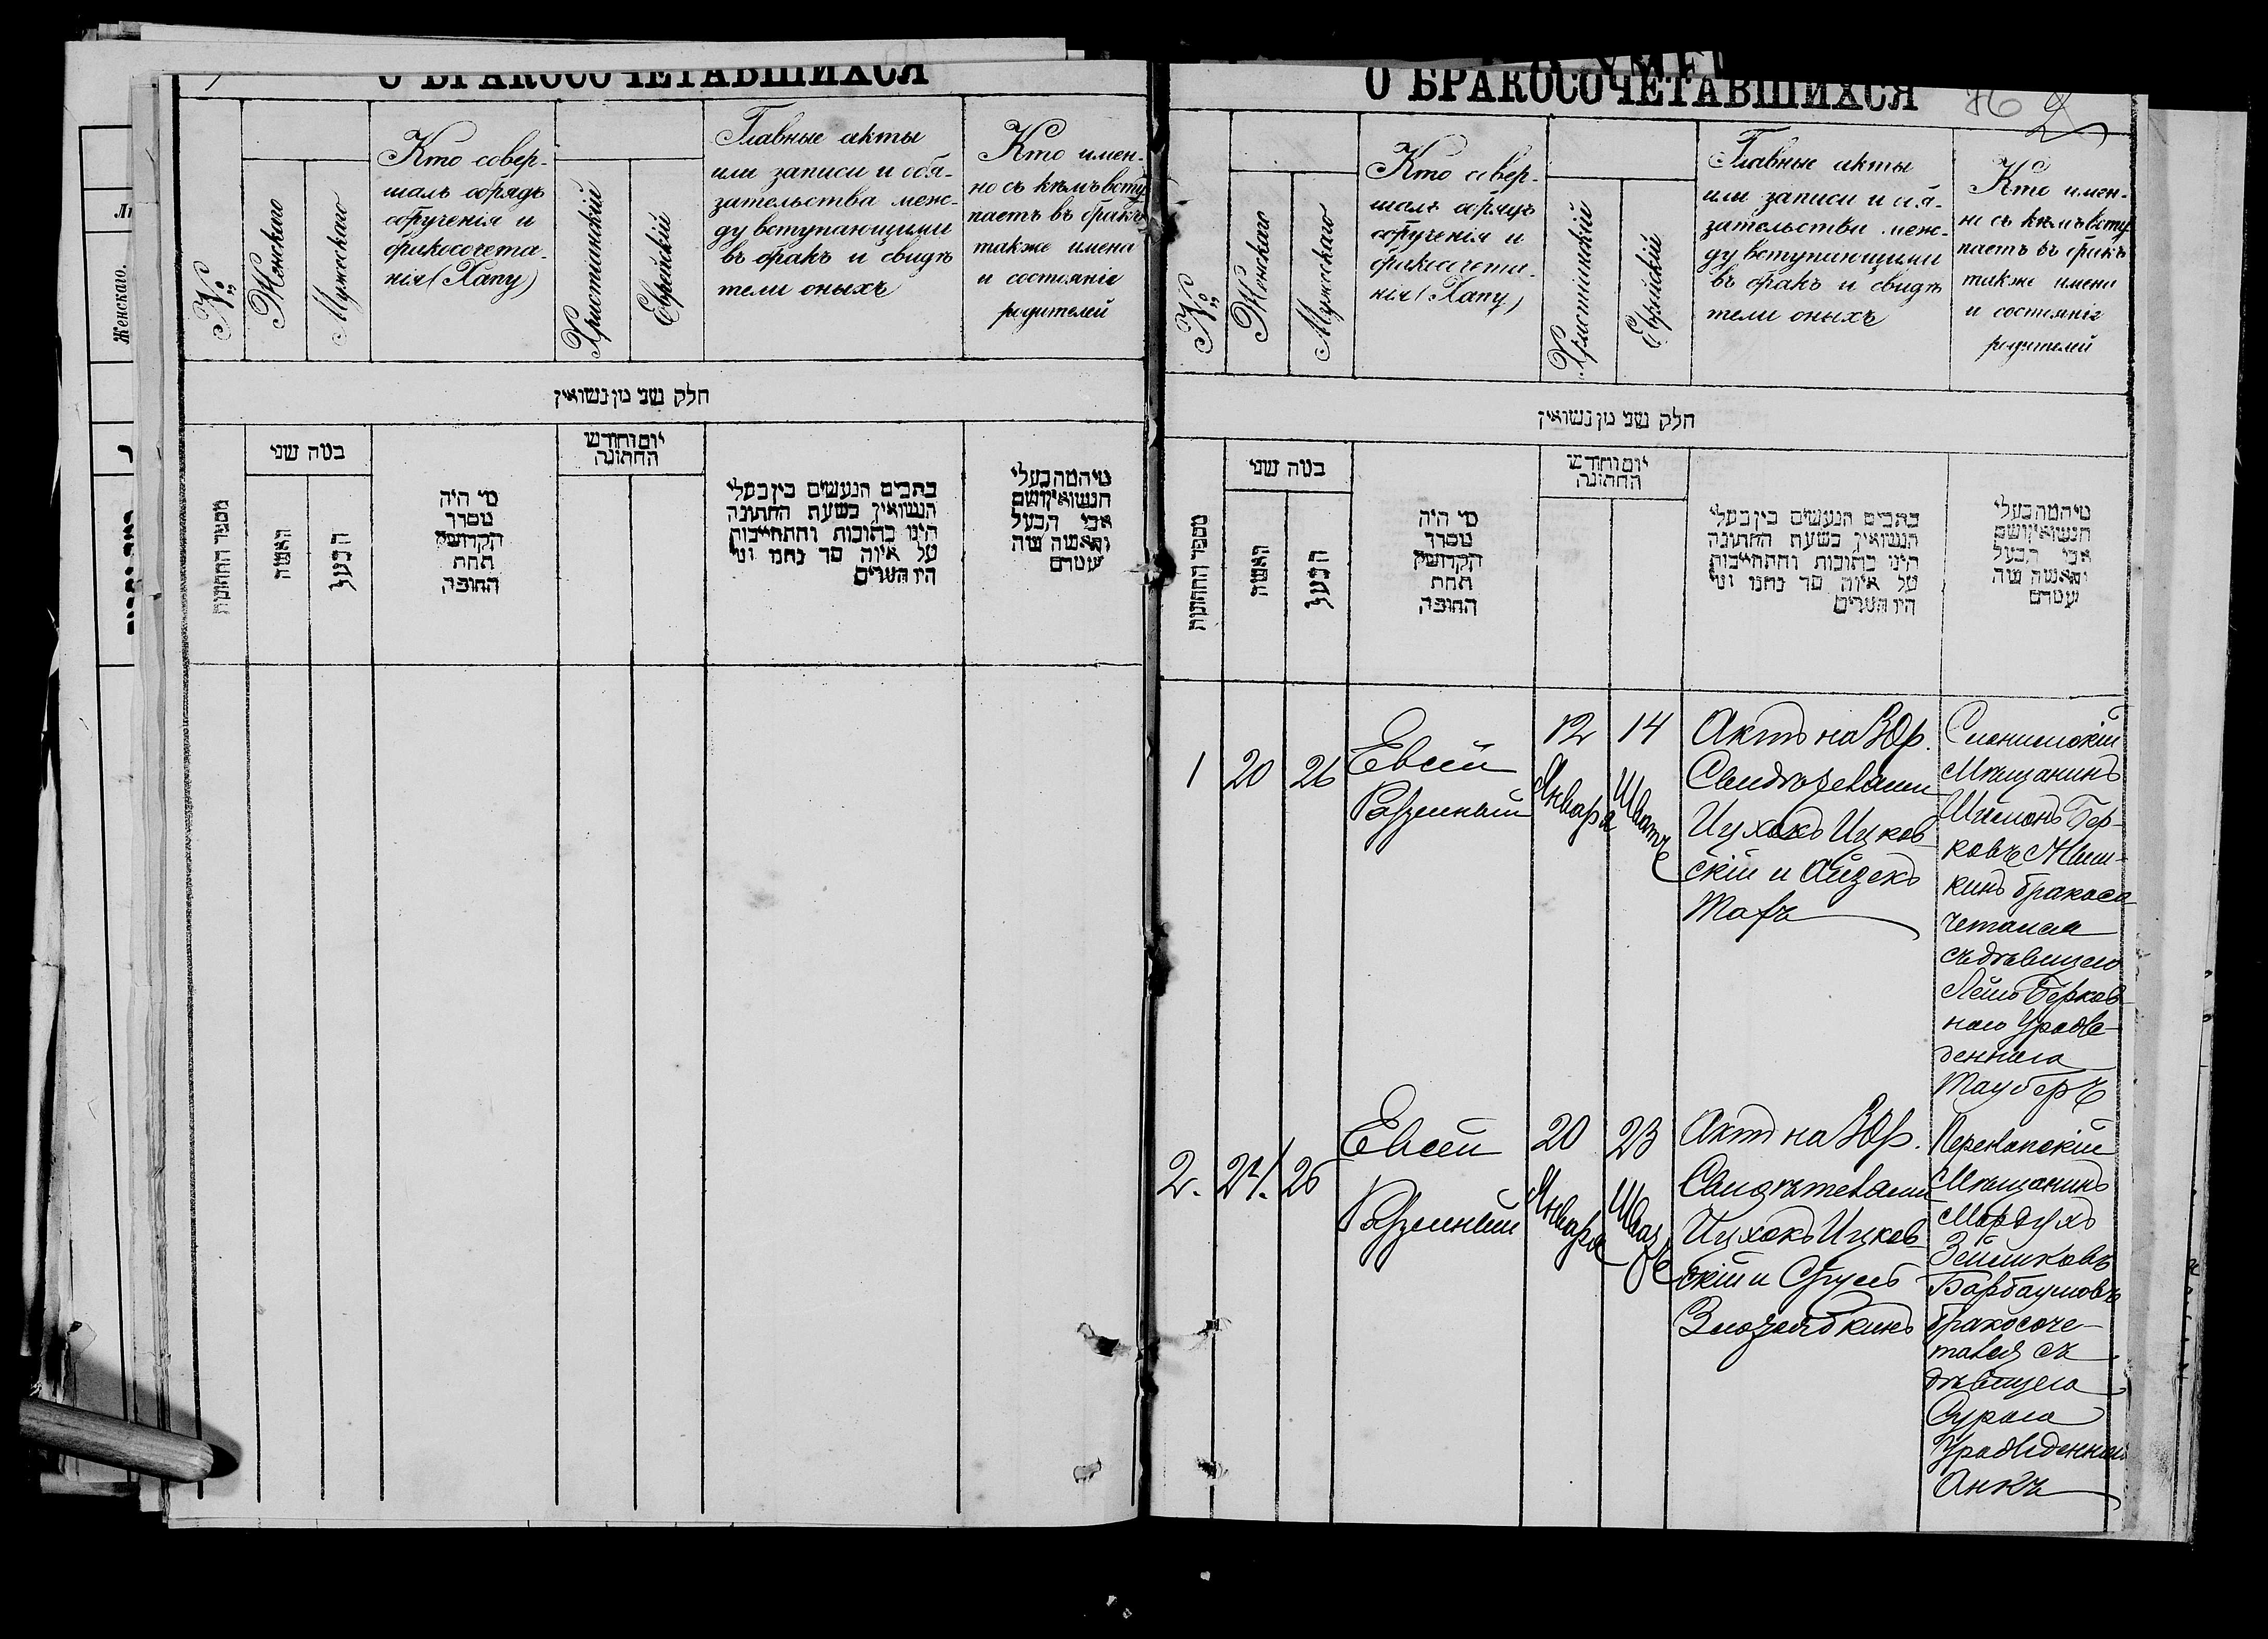 О БРАКОСОЧЕТАВШИХСЯ
№
Женскаго
Мужескаго
Кто совер-
шалъ обрядъ
обрученія и
бракосочета-
нія (Хапу)
Христіанскій
Еврейскій
Главные акты
или записи и обя-
зательства меж-
ду вступающими
въ бракъ и свидѣ
тели оныхъ
Кто имен-
но съ кѣмъ всту
паетъ въ бракъ
также имена
и состояніе
родителей
חלק שני מן נשואין
מספר החתונות
כמה שני
האשה
הבעל
מי היה
מסדר
הקדושין
תחת
החופה
יום וחודש
החתונה
כתבים הנעשים בין בעלי
הנשואין בשעת החתונה
היינו כתובות והתחייבות
על איזה סך נתנו ומי
היו העדים
מי המה בעלי
הנשואין ושם
אבי הבעל
והאשה ומה
עמדם
Женскаго.
О БРАКОСОЧЕТАВШИХСЯ
76
2
№
Женскаго
Мужескаго
Кто совер-
шалъ обрядъ
обрученія и
бракосочета-
нія (Хапу)
Христіанскій
Еврейскій
Главные акты
или записи и обя-
зательства меж-
ду вступающими
въ бракъ и свидѣ
тели оныхъ
Кто имен-
но съ кѣмъ всту
паетъ въ бракъ
также имена
и состояніе
родителей
חלק שני מן נשואין
מספר החתונות
כמה שני
האשה
הבעל
מי היה
מסדר
הקדושין
תחת
החופה
יום וחודש
החתונה
כתבים הנעשים בין בעלי
הנשואין בשעת החתונה
היינו כתובות והתחייבות
על איזה סך נתנו ומי
היו העדים
מי המה בעלי
הנשואין ושם
אבי הבעל
והאשה ומה
עמדם
1 20 26
Евсей
Разумный
12
Января
14
Шватъ
Актъ на
Свидѣтелями
Ицхокъ Ицков
скій и Айзекъ
Слонимскій
Мѣщанинъ
Шимонъ Бер-
ковъ
бракосо
четался
съ дѣвицею
Берков
ною урожде-
денная
Тауберъ
2. 24. 26
Евсей
Разумный
20
Января
23
Актъ на
Свидѣтелями
Ицхокъ Ицков
скій и
Перекопскій
Мѣщанинъ
Мордухъ
Зеликовъ
Барбаумовъ
бракосоче-
тался съ
дѣвицею
Сурою
Анкъ